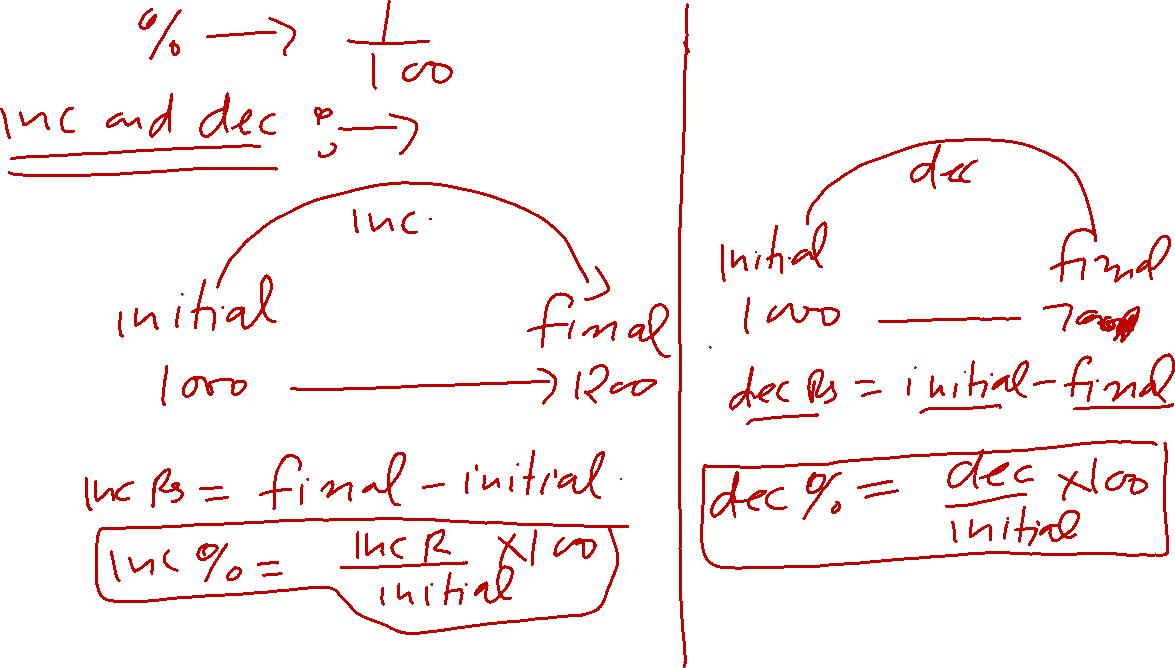 % → 1/100
inc and dec :→
inc.
initial final
1000 → 1200
inc Rs = final - initial.
inc % = inc R/initial ×100
dec
initial final
1000 —
dec Rs = initial - final
dec % = dec/initial ×100